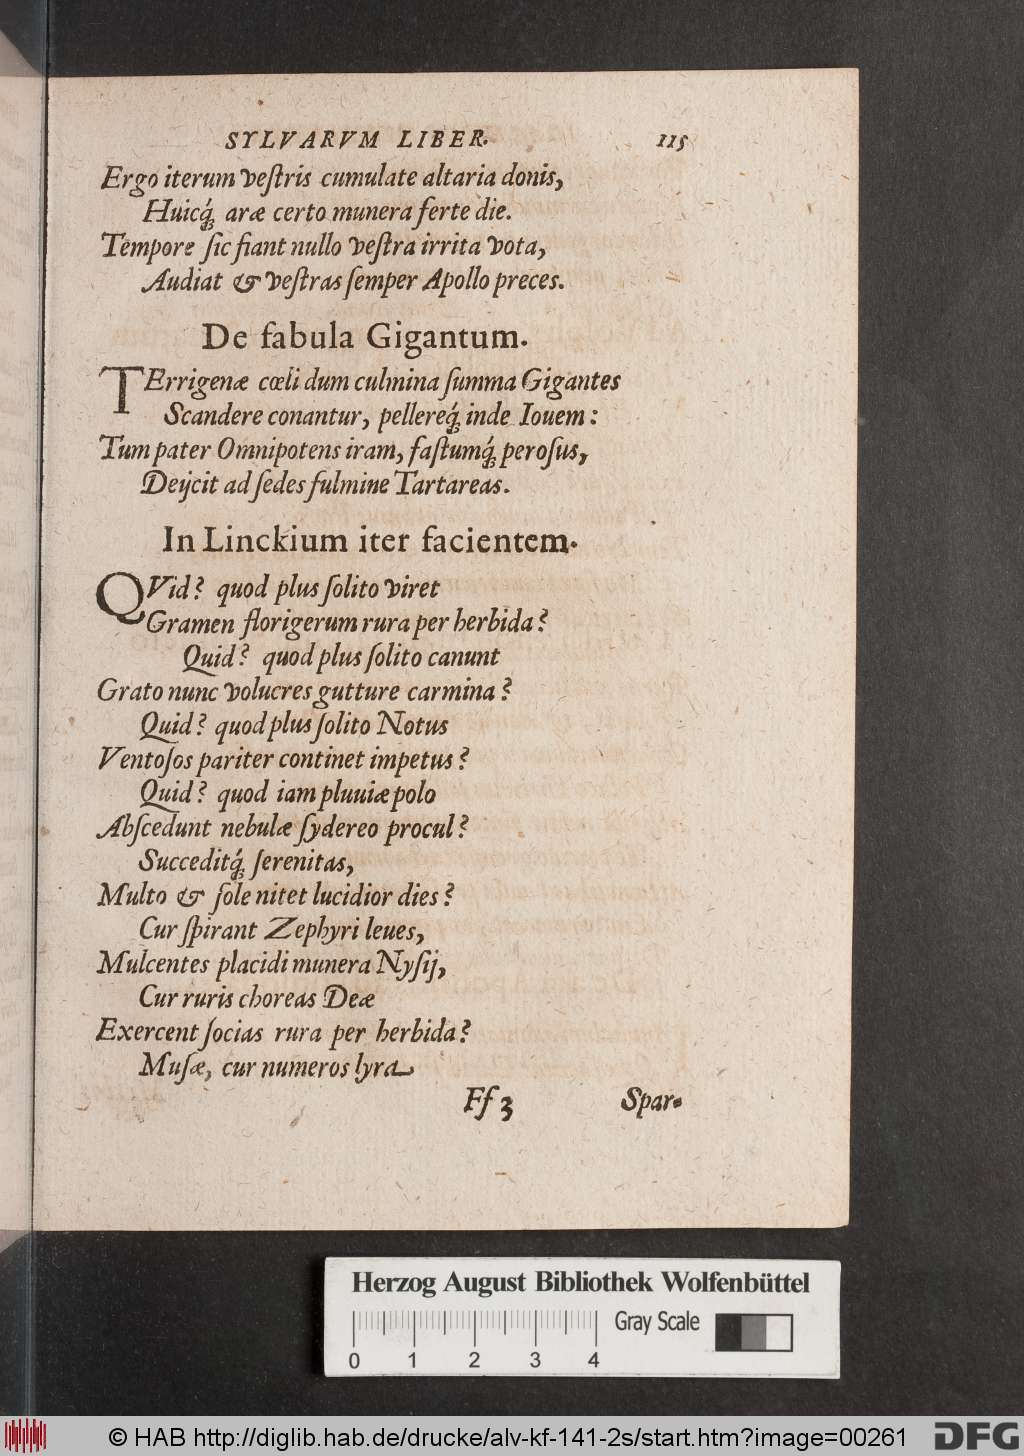 SYLVARVM LIBER. 115
Ergo iterum veſtris cumulate altaria donis,
Huicq́; aræ certo munera ferte die.
Tempore ſic fiant nullo veſtra irrita vota,
Audiat & veſtras ſemper Apollo preces.
De fabula Gigantum.
TErrigenæ cœli dum culmina ſumma Gigantes
Scandere conantur, pellereq́; inde Iouem:
Tum pater Omnipotens iram, faſtumq́; peroſus,
Deijcit ad ſedes fulmine Tartareas.
In Linckium iter facientem.
QVid? quod plus ſolito viret
Gramen florigerum rura per herbida?
Quid? quod plus ſolito canunt
Grato nunc volucres gutture carmina?
Quid? quod plus ſolito Notus
Ventoſos pariter continet impetus?
Quid? quod iam pluuiæ polo
Abſcedunt nebulæ ſydereo procul?
Succeditq́; ſerenitas,
Multo & ſole nitet lucidior dies?
Cur ſpirant Zephyri leues,
Mulcentes placidi munera Nyſij,
Cur ruris choreas Deæ
Exercent ſocias rura per herbida?
Muſæ, cur numeros lyra
Ff 3 Spar-
Herzog August Bibliothek Wolfenbüttel
Gray Scale
0 1 2 3 4
© HAB http://diglib.hab.de/drucke/alv-kf-141-2s/start.htm?image=00261
DFG